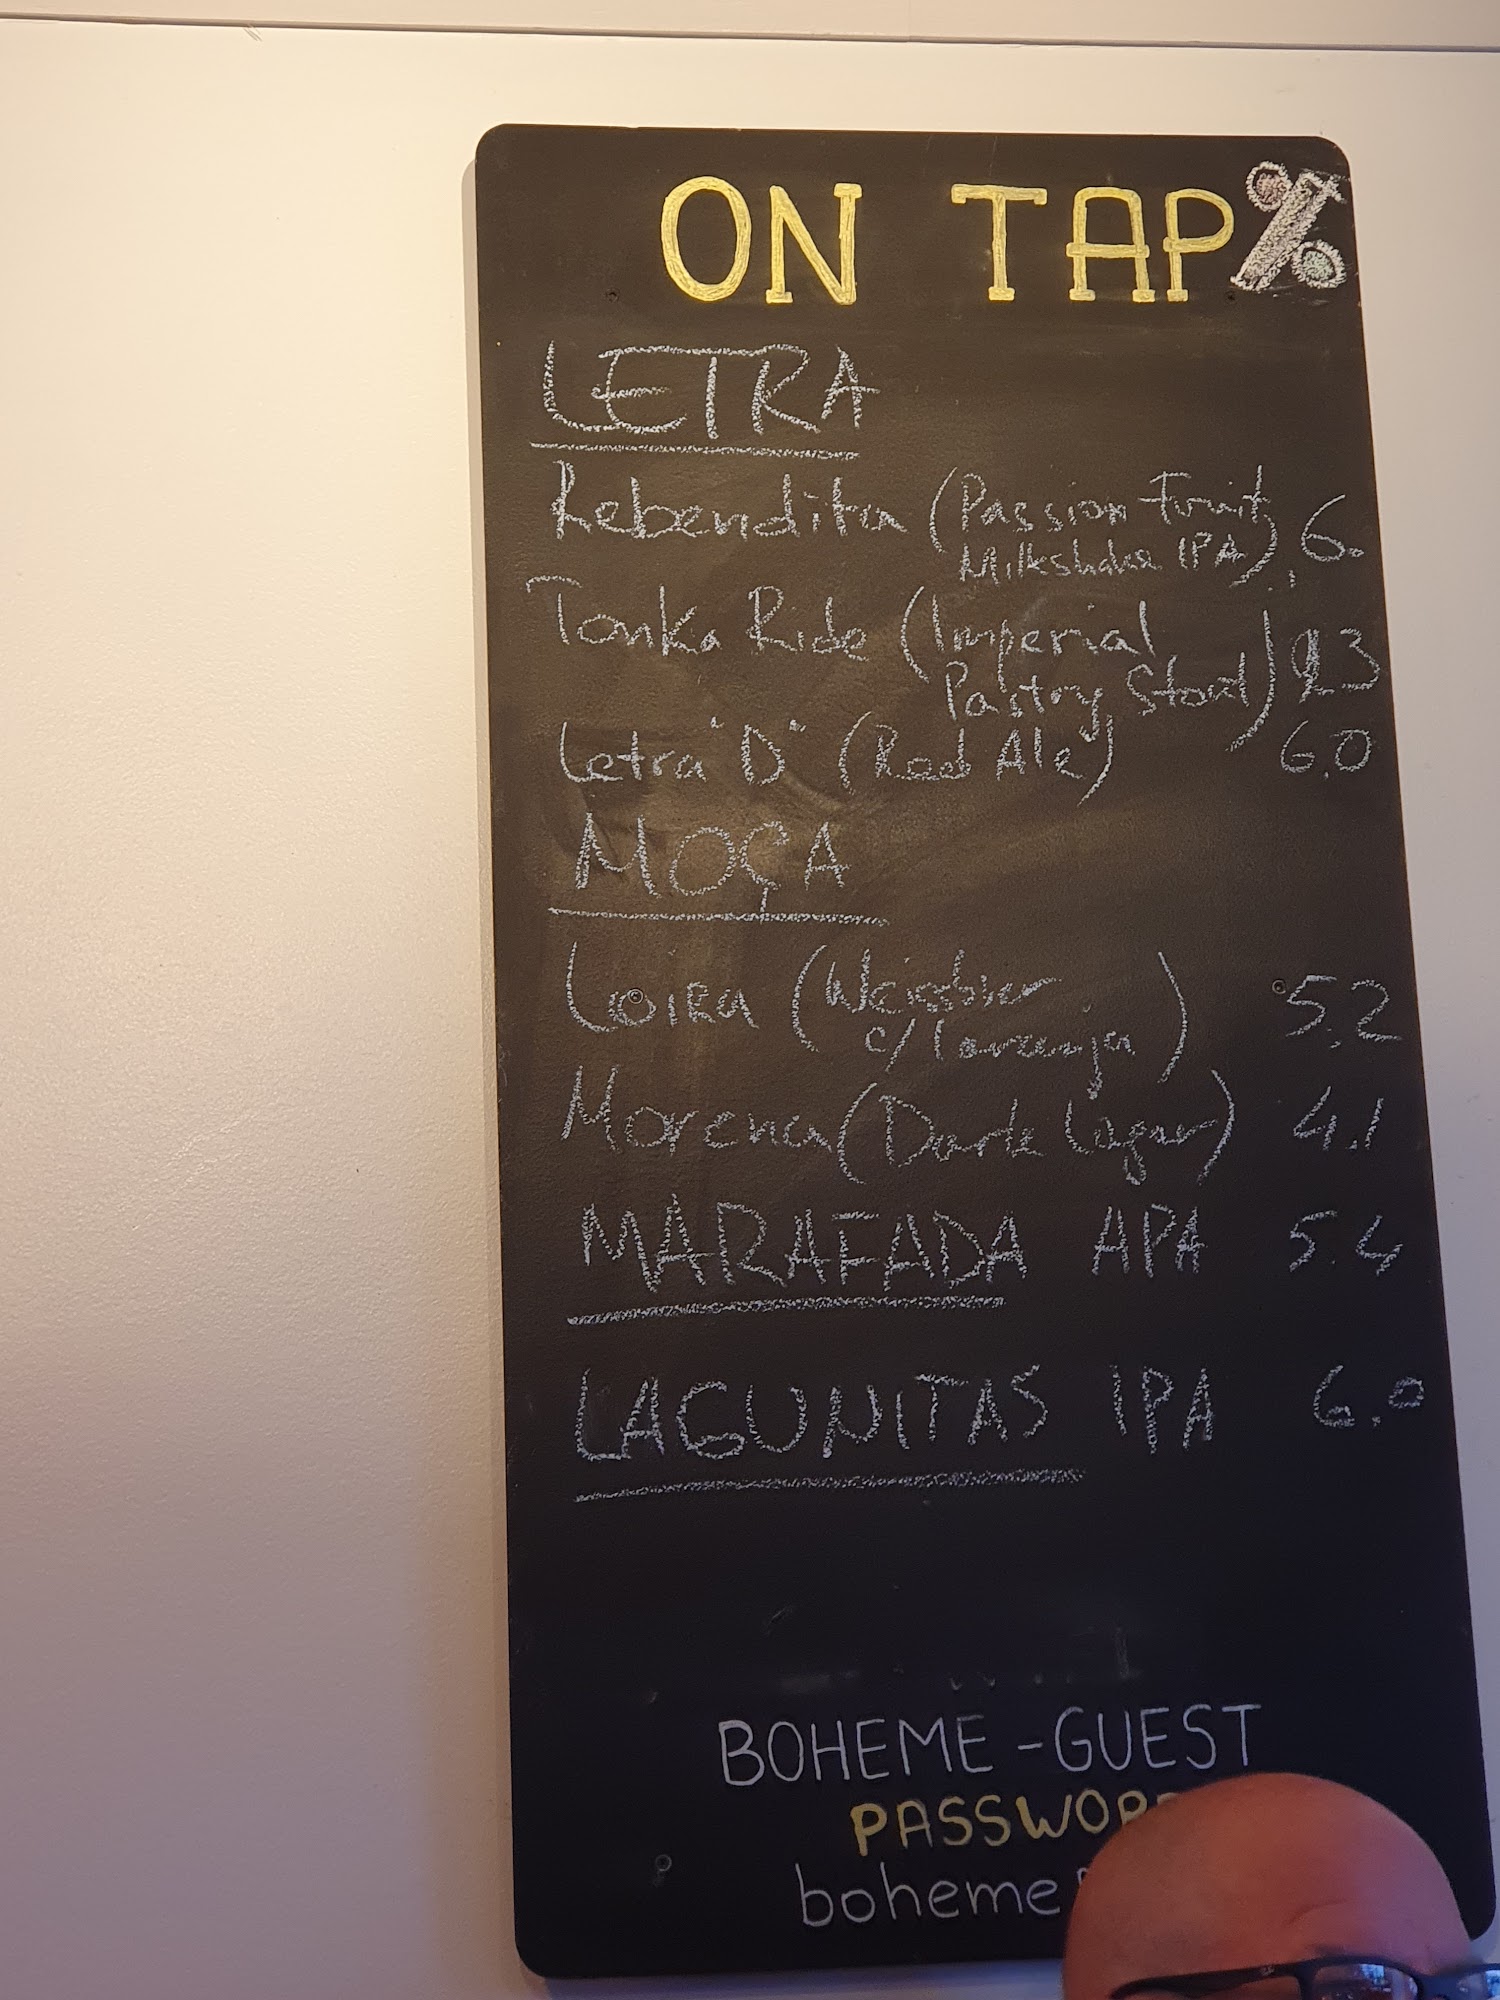 ON TAP %
LETRA
Rebendita (Passion Fruit
Milkshake IPA) 6.
Tonka Ride (Imperial
Pastry Stout)
Letra "D" (Red Ale) 6.0
MOÇA
Loira (Weissbier
c/ laranja) 5.2
Morena (Dark Lager) 4.1
MARAFADA APA 5.4
LAGUNITAS IPA 6.0
BOHEME-GUEST
boheme